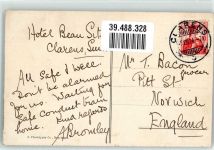 Hotel Beau Sit
Clarens, Sui
39.488.328
CLARENS
All Safe & well
Don't be alarmed
for us Waiting for
Safe Conduct train
home. Kind regards
A Bromley
Mr T. Bacon
Grocer
Pitt St
Norwich
England